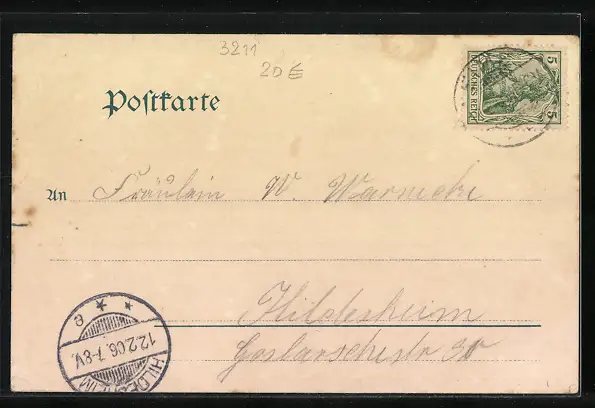 3211
20€
5 DEUTSCHES REICH 5
Postkarte
An Fräulein W. Warnecke
Hildesheim
Goslarschestr 30
HILDESHEIM
12.2.06.7-8V.
e